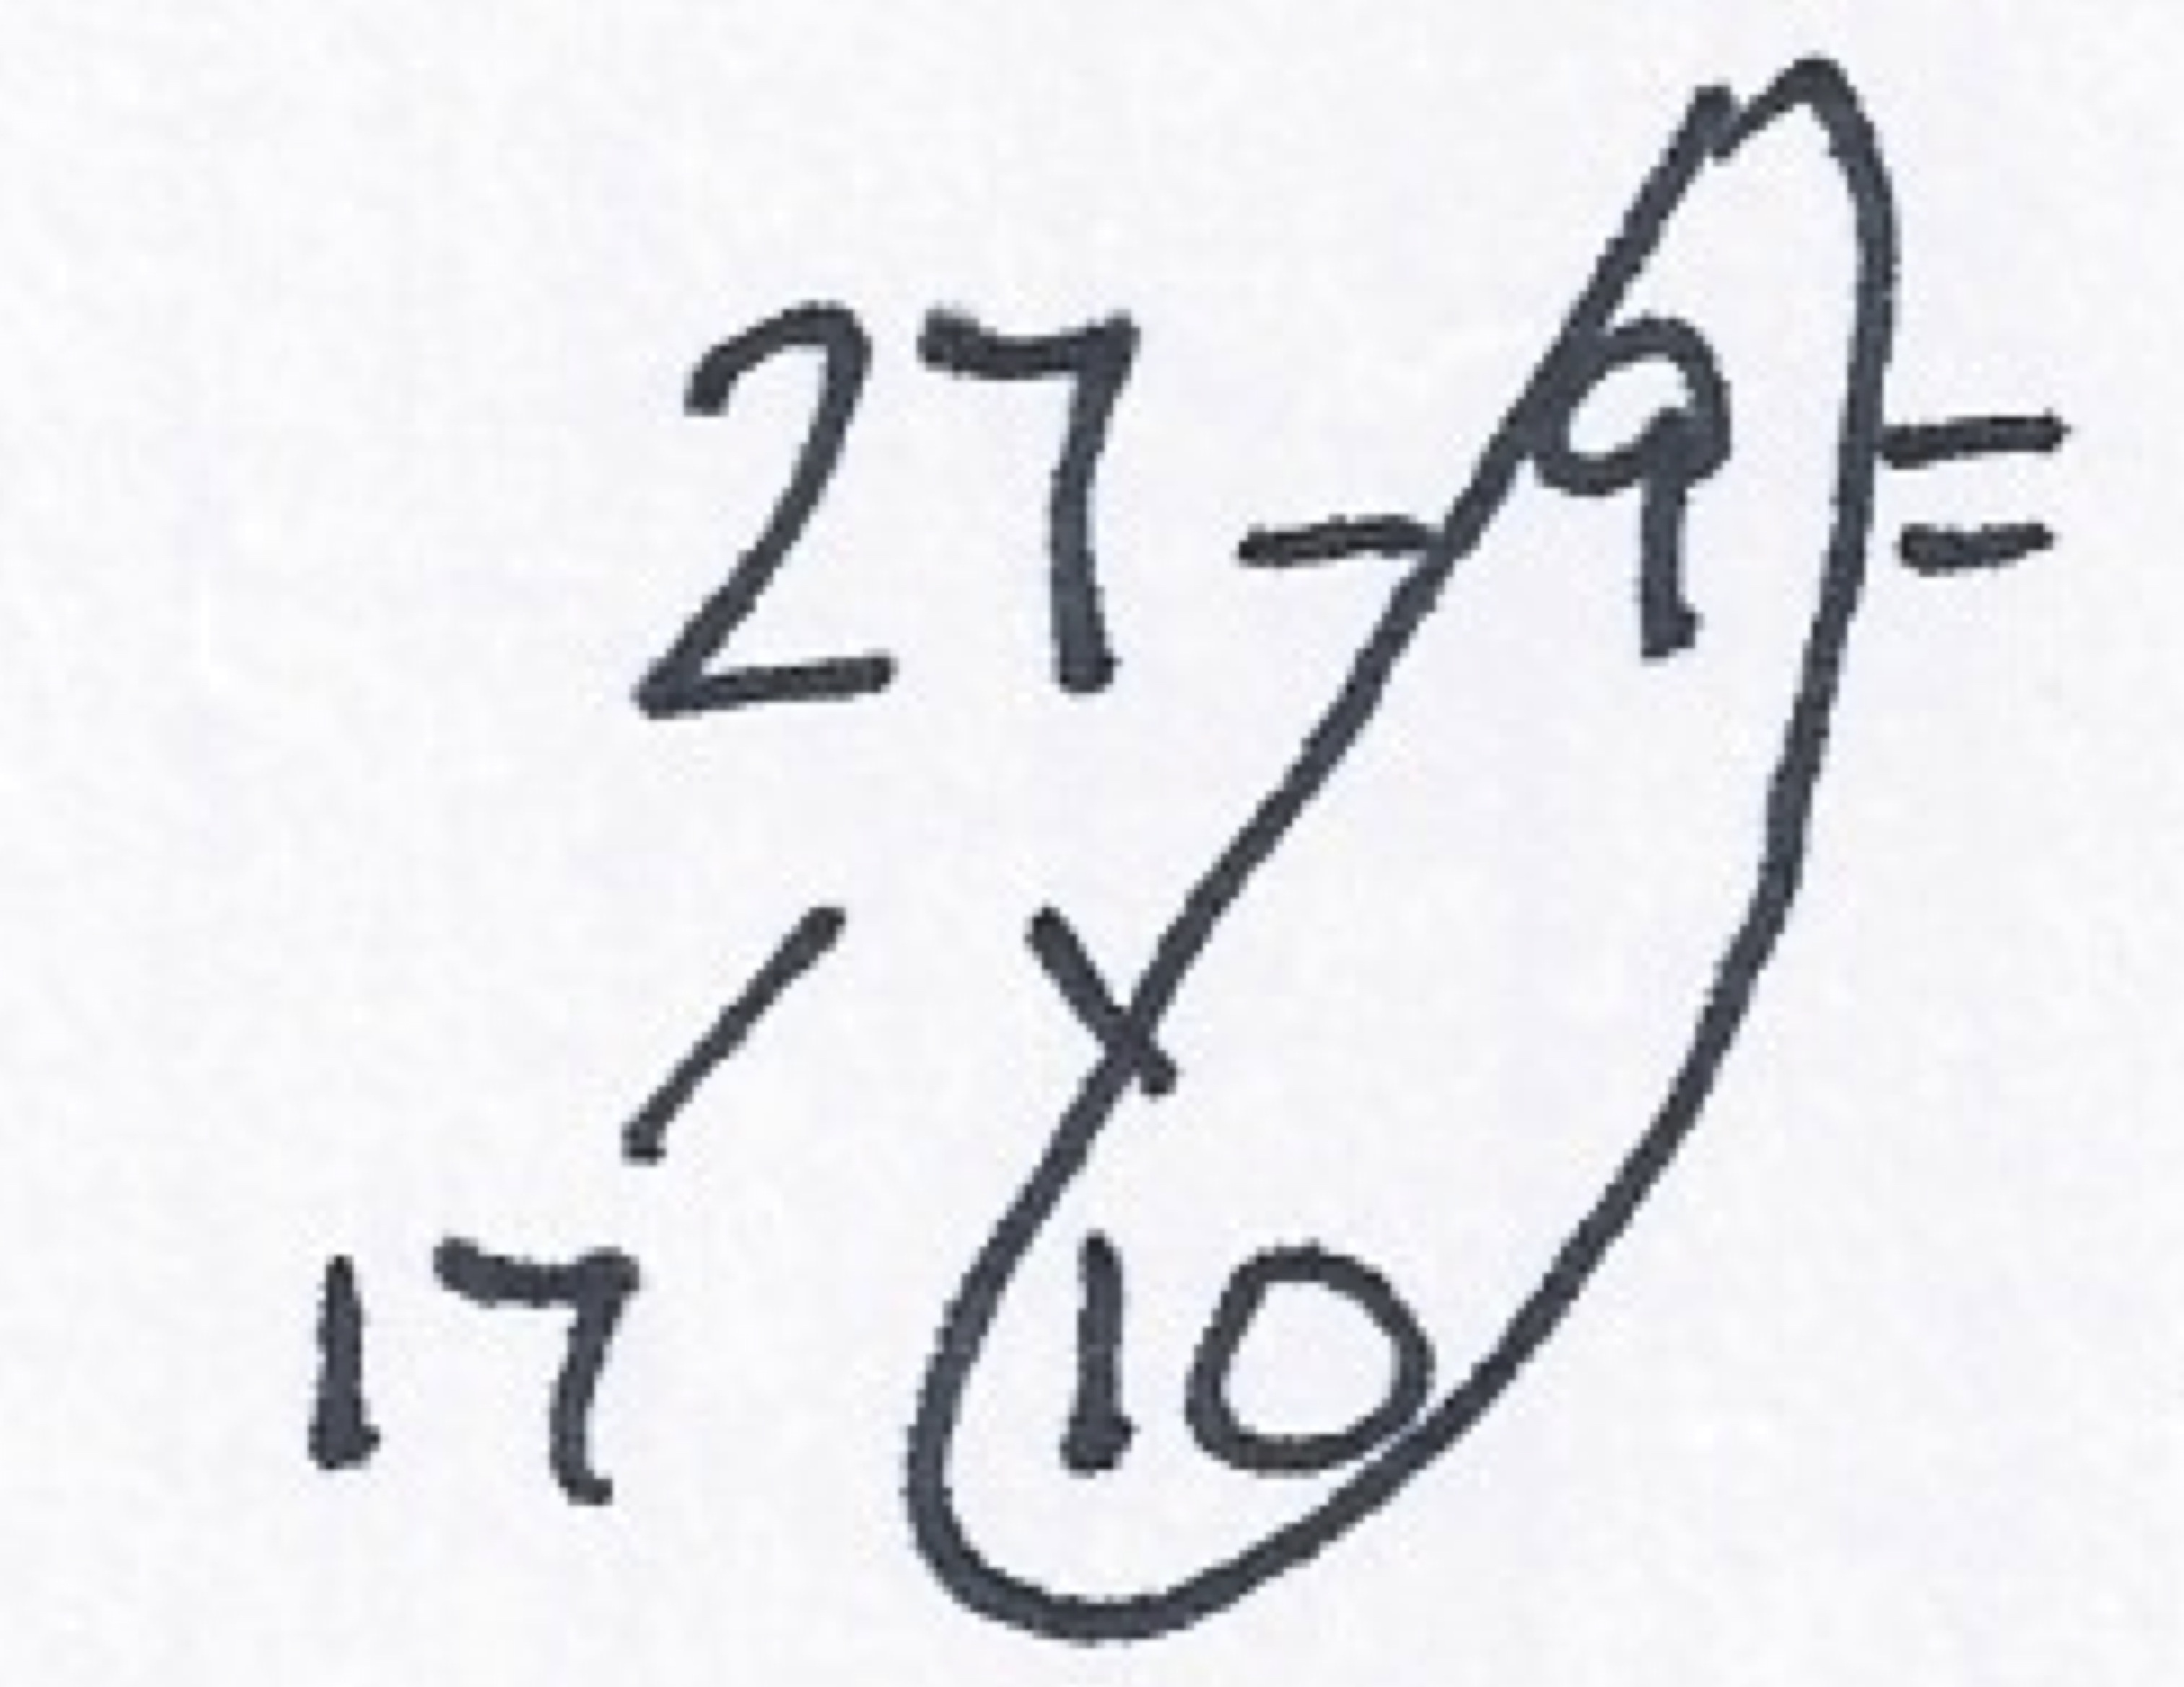 27-9=
17 10